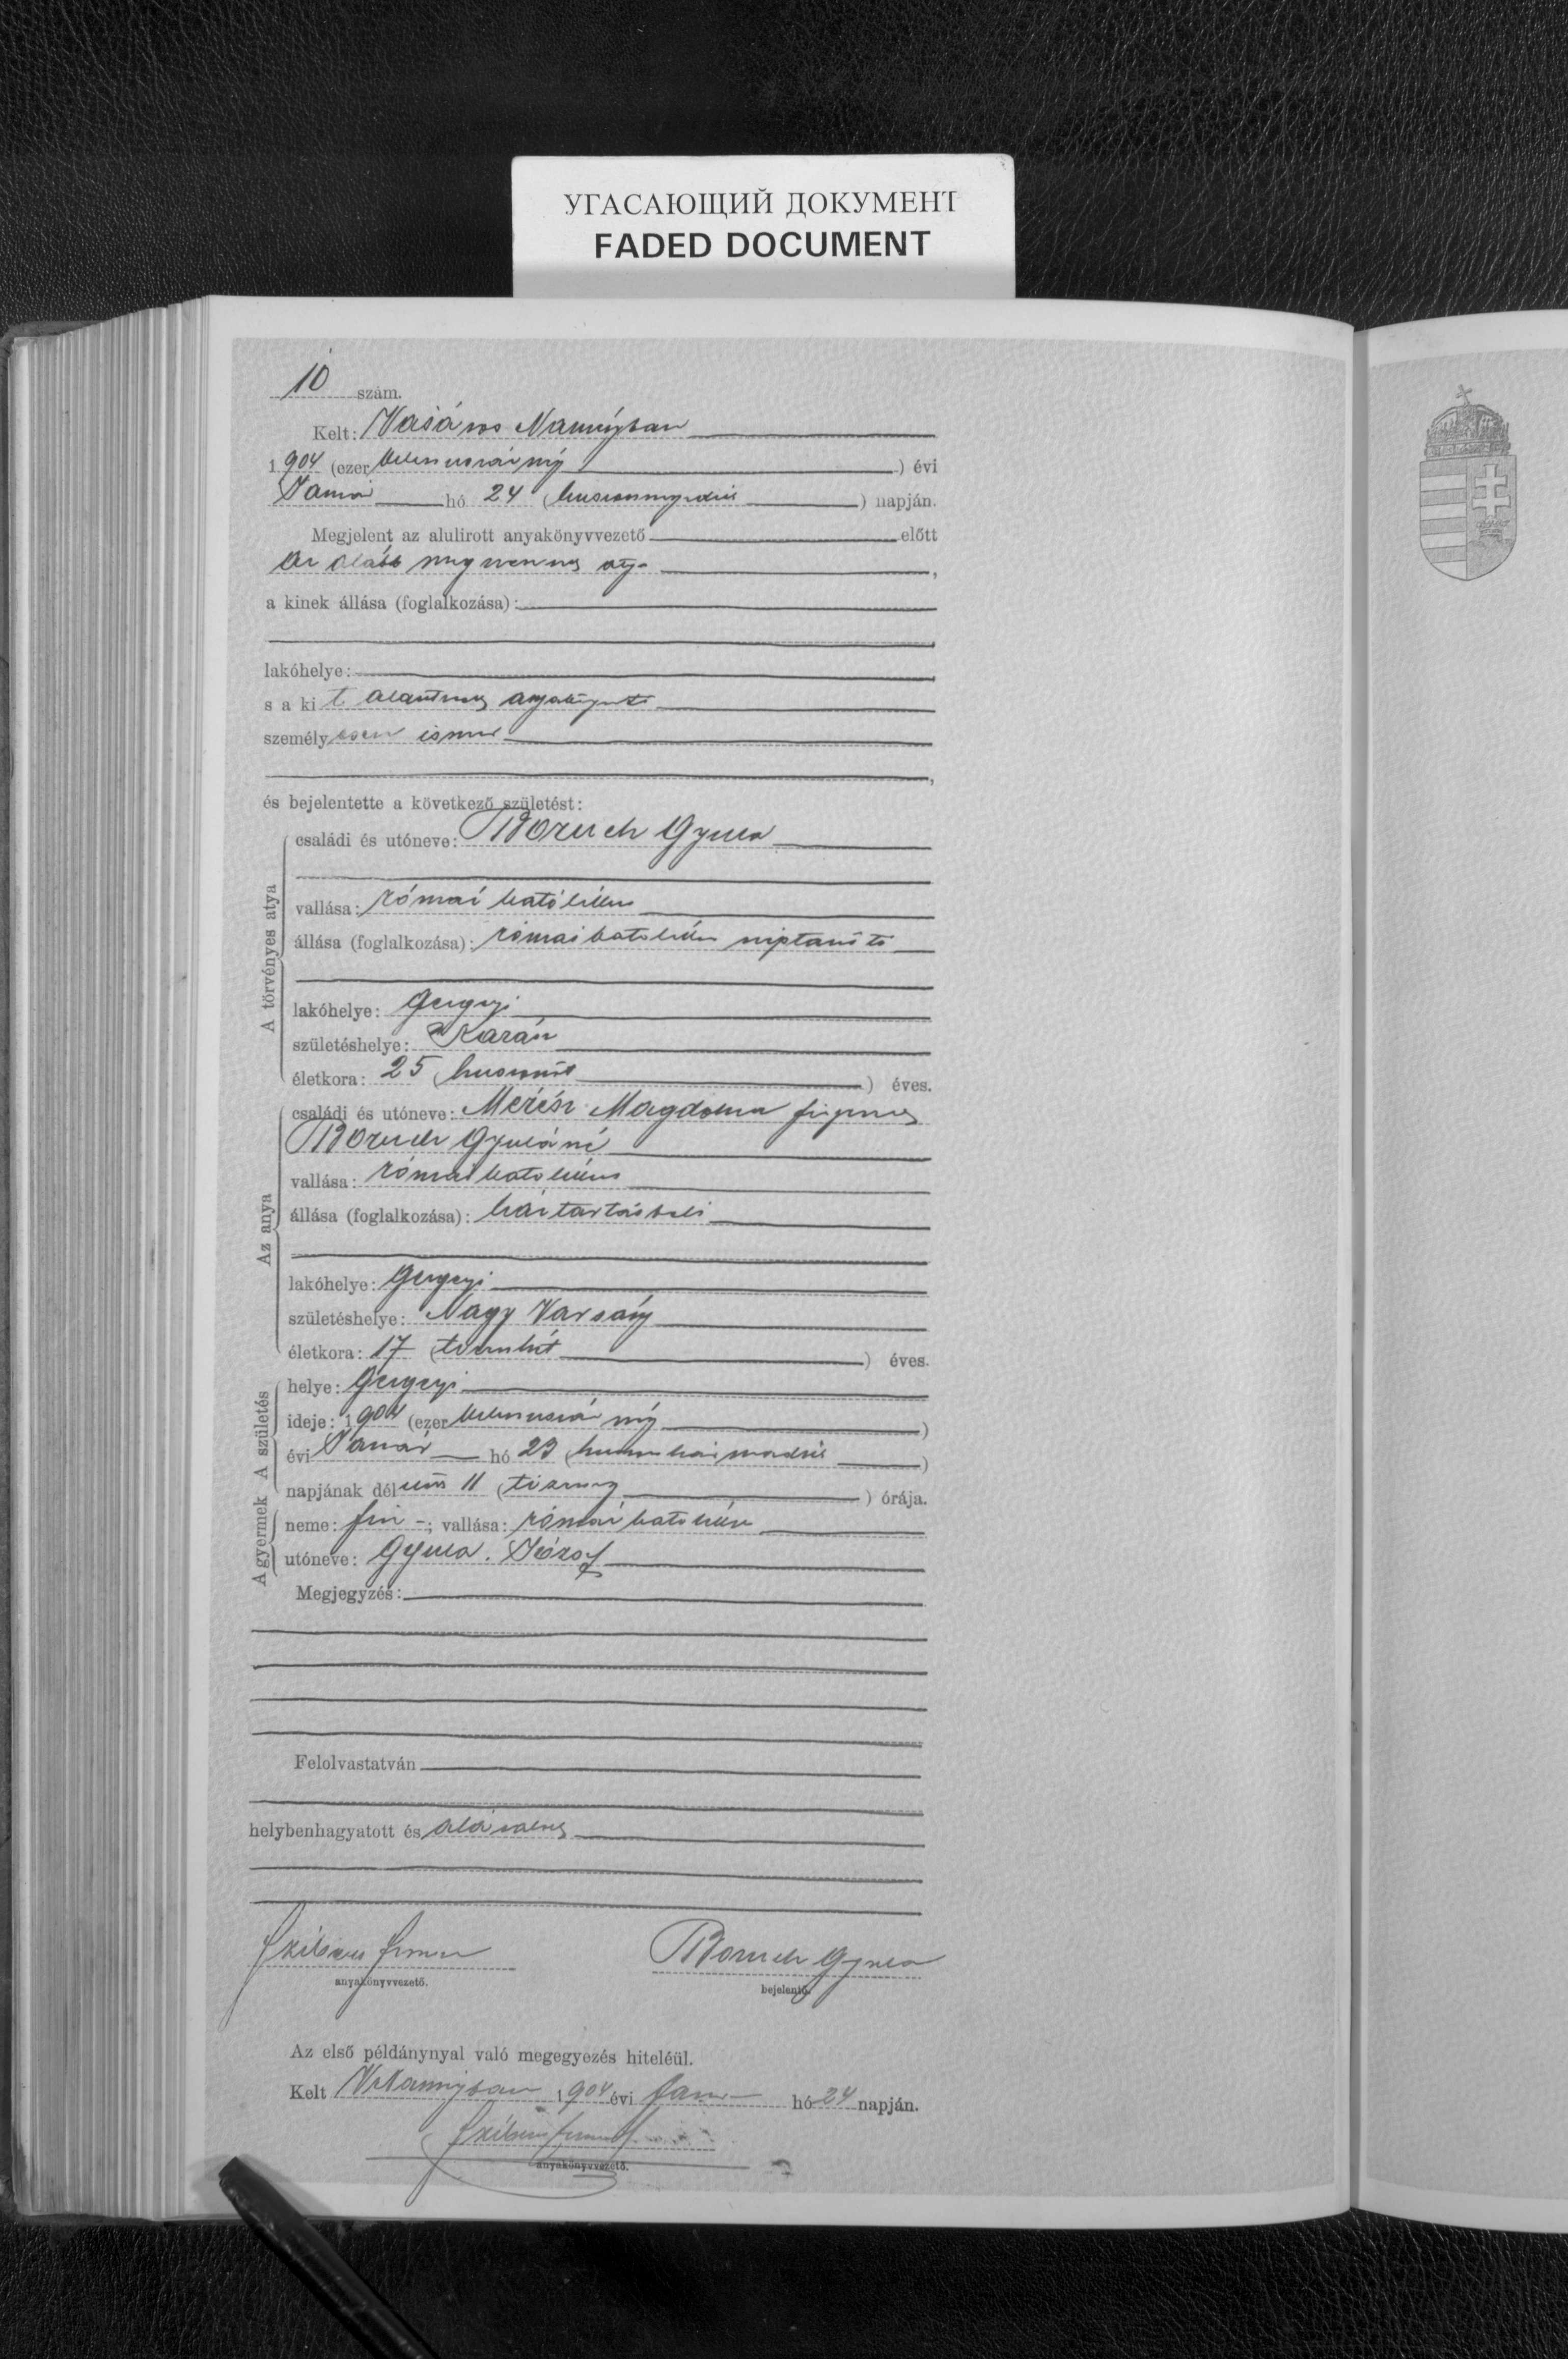 УГАСАЮЩИЙ ДОКУМЕНТ
FADED DOCUMENT
10 szám.
Kelt: Vásáros Naményban
1904 (ezer kilencszáznégy) évi
Január hó 24 (huszonnegyedik) napján.
Megjelent az alulirott anyakönyvvezető előtt
az alább megnevezett atya,
a kinek állása (foglalkozása):
lakóhelye:
s a kit alantirott anyakönyvvezető
személyesen ismer
és bejelentette a következő születést:
A törvényes atya
családi és utóneve: Boruch Gyula
vallása: római katolikus
állása (foglalkozása): római katolikus néptanító
lakóhelye: Gergelyi
születéshelye:
életkora: 25 (huszonöt) éves.
Az anya
családi és utóneve: Merész Magdolna férjezett
Boruch Gyuláné
vallása: római katolikus
állása (foglalkozása): háztartásbeli
lakóhelye: Gergelyi
születéshelye: Nagy Varsány
életkora: 17 (tizenhét) éves.
A születés
helye: Gergelyi
ideje: 1904 (ezer kilencszáznégy)
évi Január hó 23 (huszonharmadik)
napjának délelőtt 11 (tizenegy) órája.
A gyermek
neme: fiú -; vallása: római katolikus
utóneve: Gyula. József
Megjegyzés:
Felolvastatván
helybenhagyatott és aláíratott
anyakönyvvezető.
Boruch Gyula
bejelentő.
Az első példánynyal való megegyezés hiteléül.
Kelt VNaményban 1904 évi Jan hó 24 napján.
anyakönyvvezető.